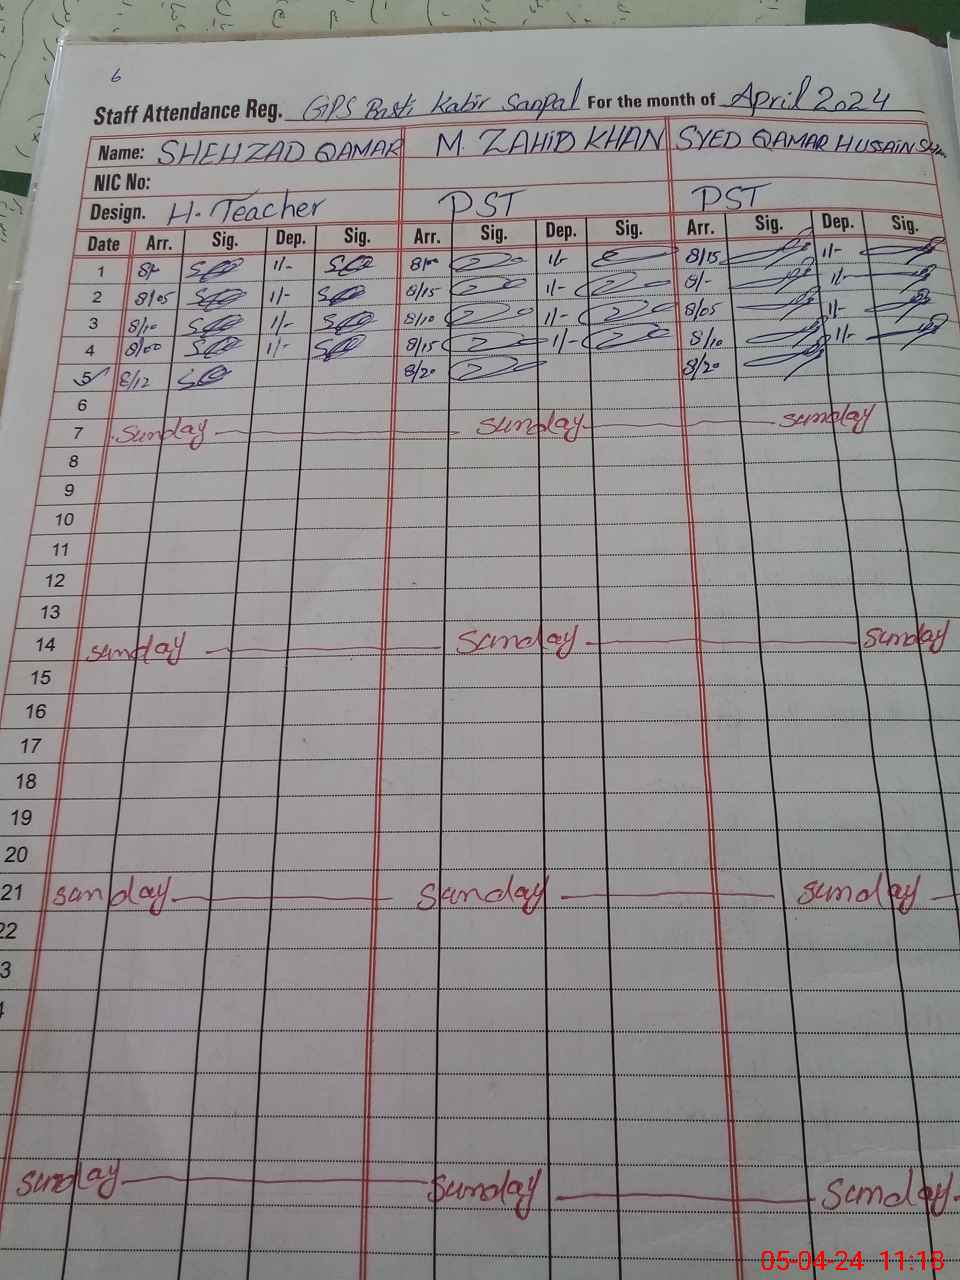 6
Staff Attendance Reg. GPS Basti Kabir Sanpal For the month of April 2024
Name: SHEHZAD QAMAR M. ZAHID KHAN SYED QAMAR HUSSAIN
NIC No:
Design. H. Teacher PST PST
Date Arr. Sig. Dep. Sig. Arr. Sig. Dep. Sig. Arr. Sig. Dep. Sig.
1 8/- 1/- 8/00 1/- 8/15 1/-
2 8/05 1/- 8/15 1/- 8/- 1/-
3 8/10 1/- 8/10 1/- 8/05 1/-
4 8/00 1/- 8/15 1/- 8/10 1/-
5 8/12 8/20 8/20
6
7 Sunday Sunday Sunday
8
9
10
11
12
13
14 Sunday Sunday Sunday
15
16
17
18
19
20
21 Sunday Sunday Sunday
22
3
Sunday Sunday Sunday
05-04-24 11:18